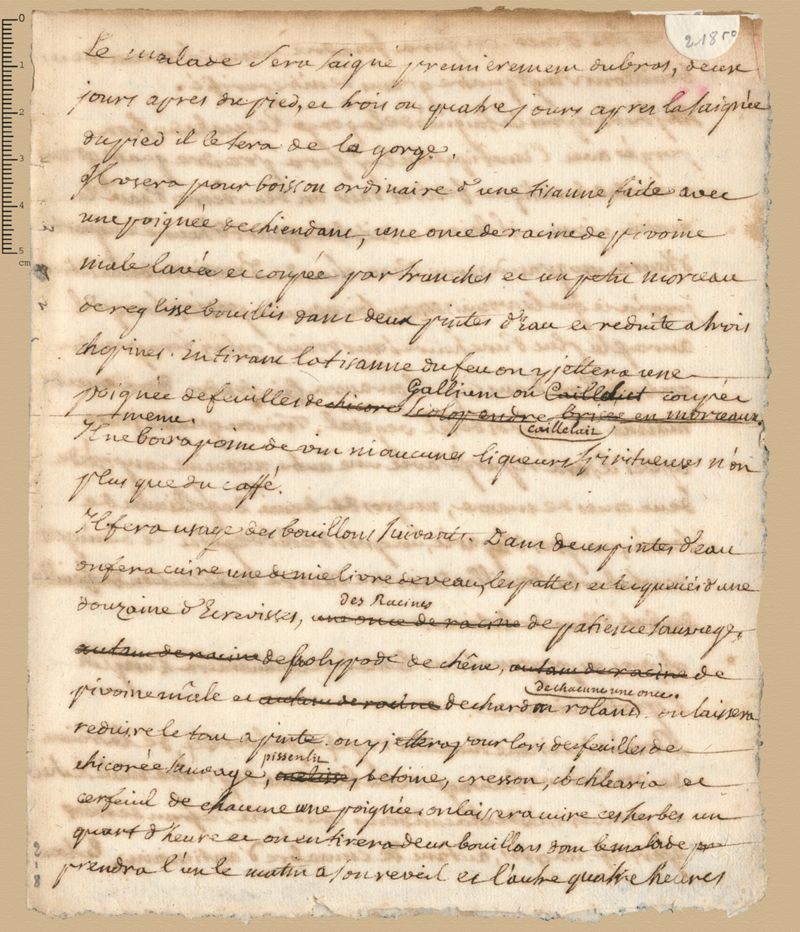 21850
Le malade sera saigné premierement du bras, deux
jours apres du pied, et trois ou quatre jours apres la saignée
du pied il le sera de la gorge.
Il usera pour boisson ordinaire d'une tisanne faite avec
une poignée de chiendant, une once de racine de pivoine
male lavée et coupée par tranches et un petit morceau
de reglisse bouillis dans deux pintes d'Eau et reduite a trois
chopines. En tirant la tisanne du feu on y jettera une
Gallium ou Caillelait coupée
poignée de feuilles de chicoré scolopendre brisée en morceaux.
menu. caillelait
Il ne boira point de vin ni aucunes liqueurs spiritueuses n'on
plus que du caffé.
Il fera usage des bouillons suivants. Dans deux pintes d'eau
on fera cuire une demie livre de veau, les pattes et les queües d'une
des Racines
douzaine d'Ecrevisses, une once de racine de patience sauvage,
autant de racine de polypode de chêne, autant de racine de
de chacune une once.
pivoine mâle et autant de racine de chardon roland. on laissera
reduire le tout a pinte. on y jettera pour lors des feuilles de
pissenlit
chicorée sauvage, betoine, cresson, cochlearia et
cerfeuil de chacune une poignée, on laissera cuire ces herbes un
quart d'heure et on en tirera deux bouillons dont le malade pr
prendra l'un le matin a son reveil et l'autre quatre heures